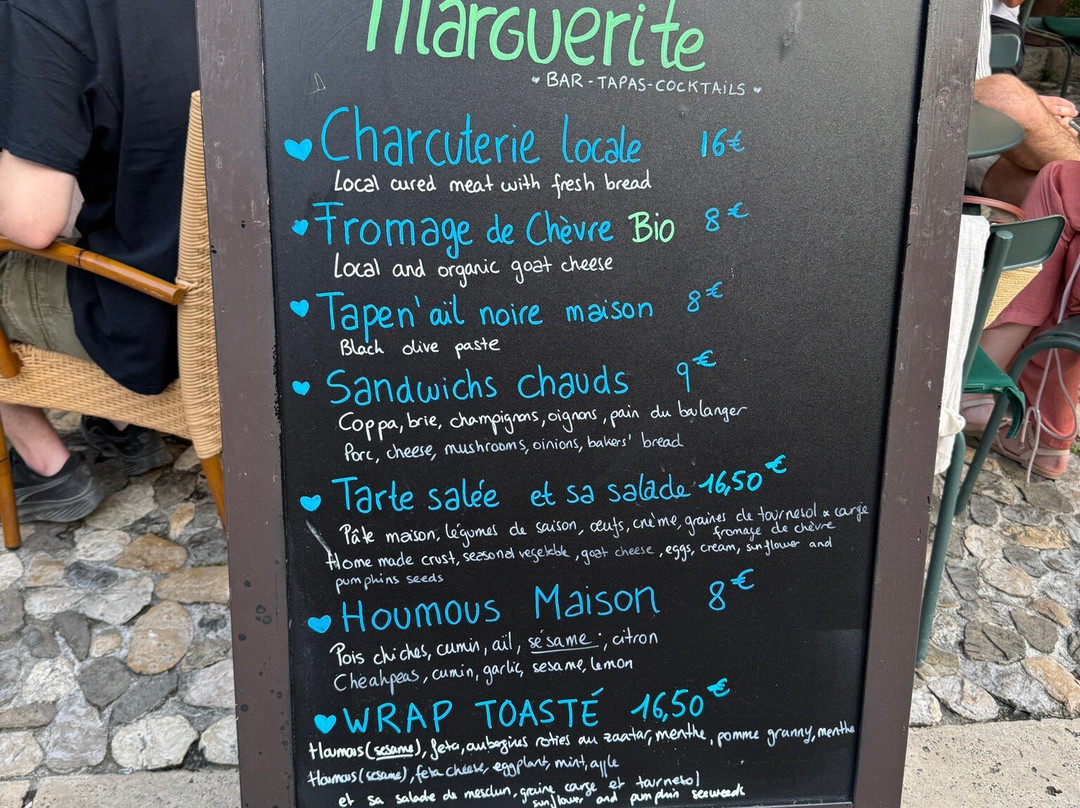 Marguerite
BAR - TAPAS - COCKTAILS
Charcuterie locale 16€
Local cured meat with fresh bread
Fromage de Chèvre Bio 8€
Local and organic goat cheese
Tapen'ail noire maison 8€
Black olive paste
Sandwichs chauds 9€
Coppa, brie, champignons, oignons, pain du boulanger
Porc, cheese, mushrooms, oinions, bakers' bread
Tarte salée et sa salade 16,50€
Pâte maison, légumes de saison, œufs, crème, graines de tournesol x carge
fromage de chèvre
Home made crust, seasonal vegetable, goat cheese, eggs, cream, sunflower and
pumphins seeds
Houmous Maison 8€
Pois chiches, cumin, ail, sésame, citron
Cheahpeas, cumin, garlic, sesame, lemon
WRAP TOASTÉ 16,50€
Houmous (sesame), feta, aubegins roties au zaatar, menthe, pomme granny, menthe
Houmous (sesame), feta cheese, eggplant, mint, apple
et sa salade de mesclun, graine carge et tournesol
sunflower and pumphin seeweeds